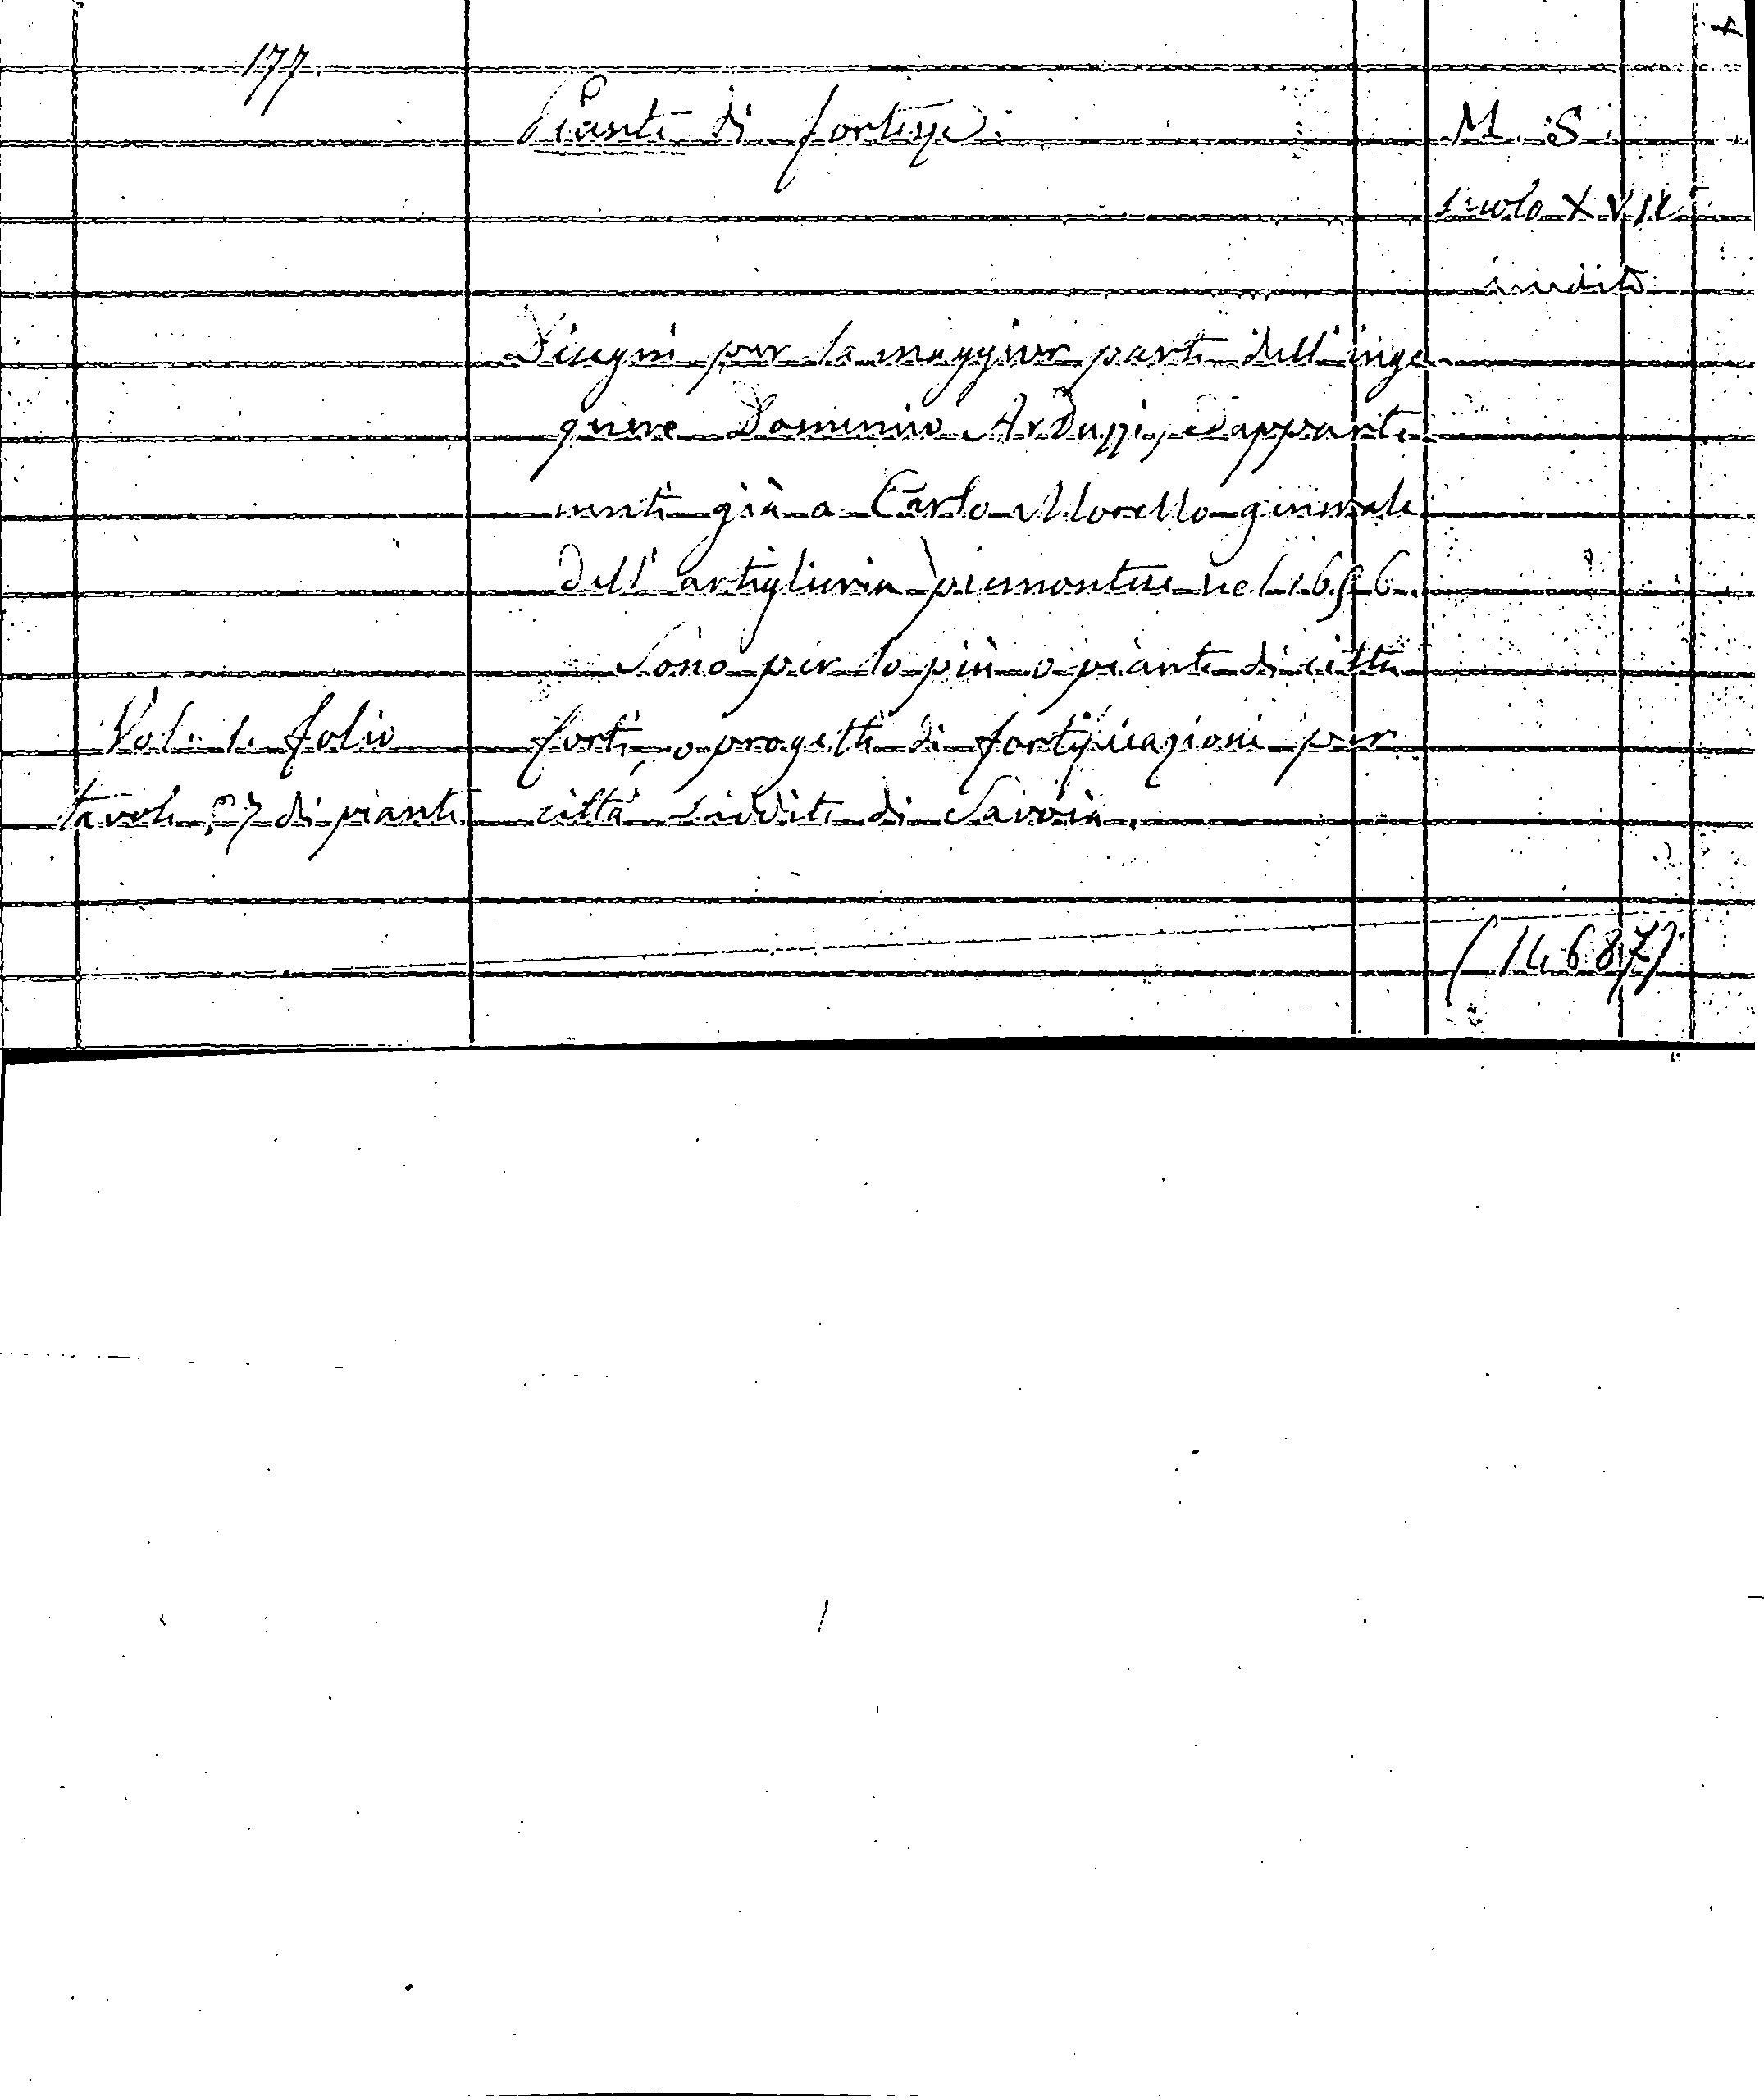 177.
Piante di fortezze.
M. S.
secolo XVII
inedito
Disegni per la maggior parte dell'inge
gnere Domenico Arduzzi, ed apparte
nenti già a Carlo Morello generale
dell'artiglieria piemontese nel 1656.
Sono per lo più o piante di città
Vol. 1. folio
forti, o progetti di fortificazioni per
tavole 97 di piante
città suddite di Savoia.
(14687)